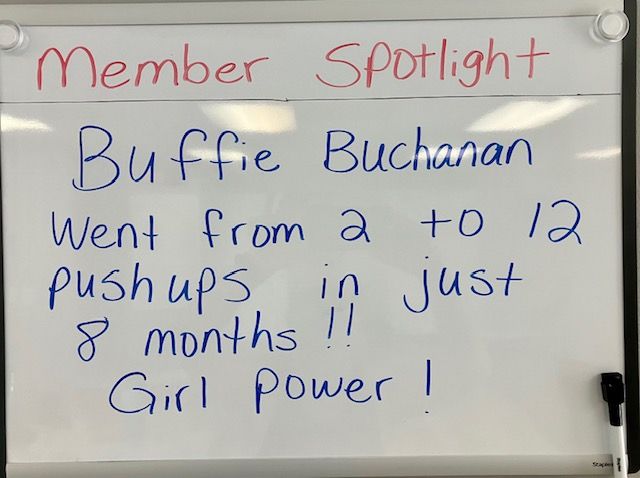 Member Spotlight
Buffie Buchanan
Went from 2 to 12
pushups in just
8 months !!
Girl Power !
Staples